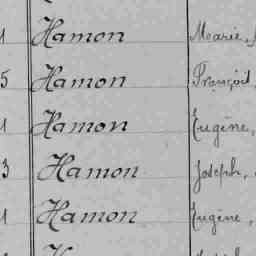 Hamon Marie,
5 Hamon François,
Hamon Eugène,
3 Hamon Joseph,
Hamon Eugène,